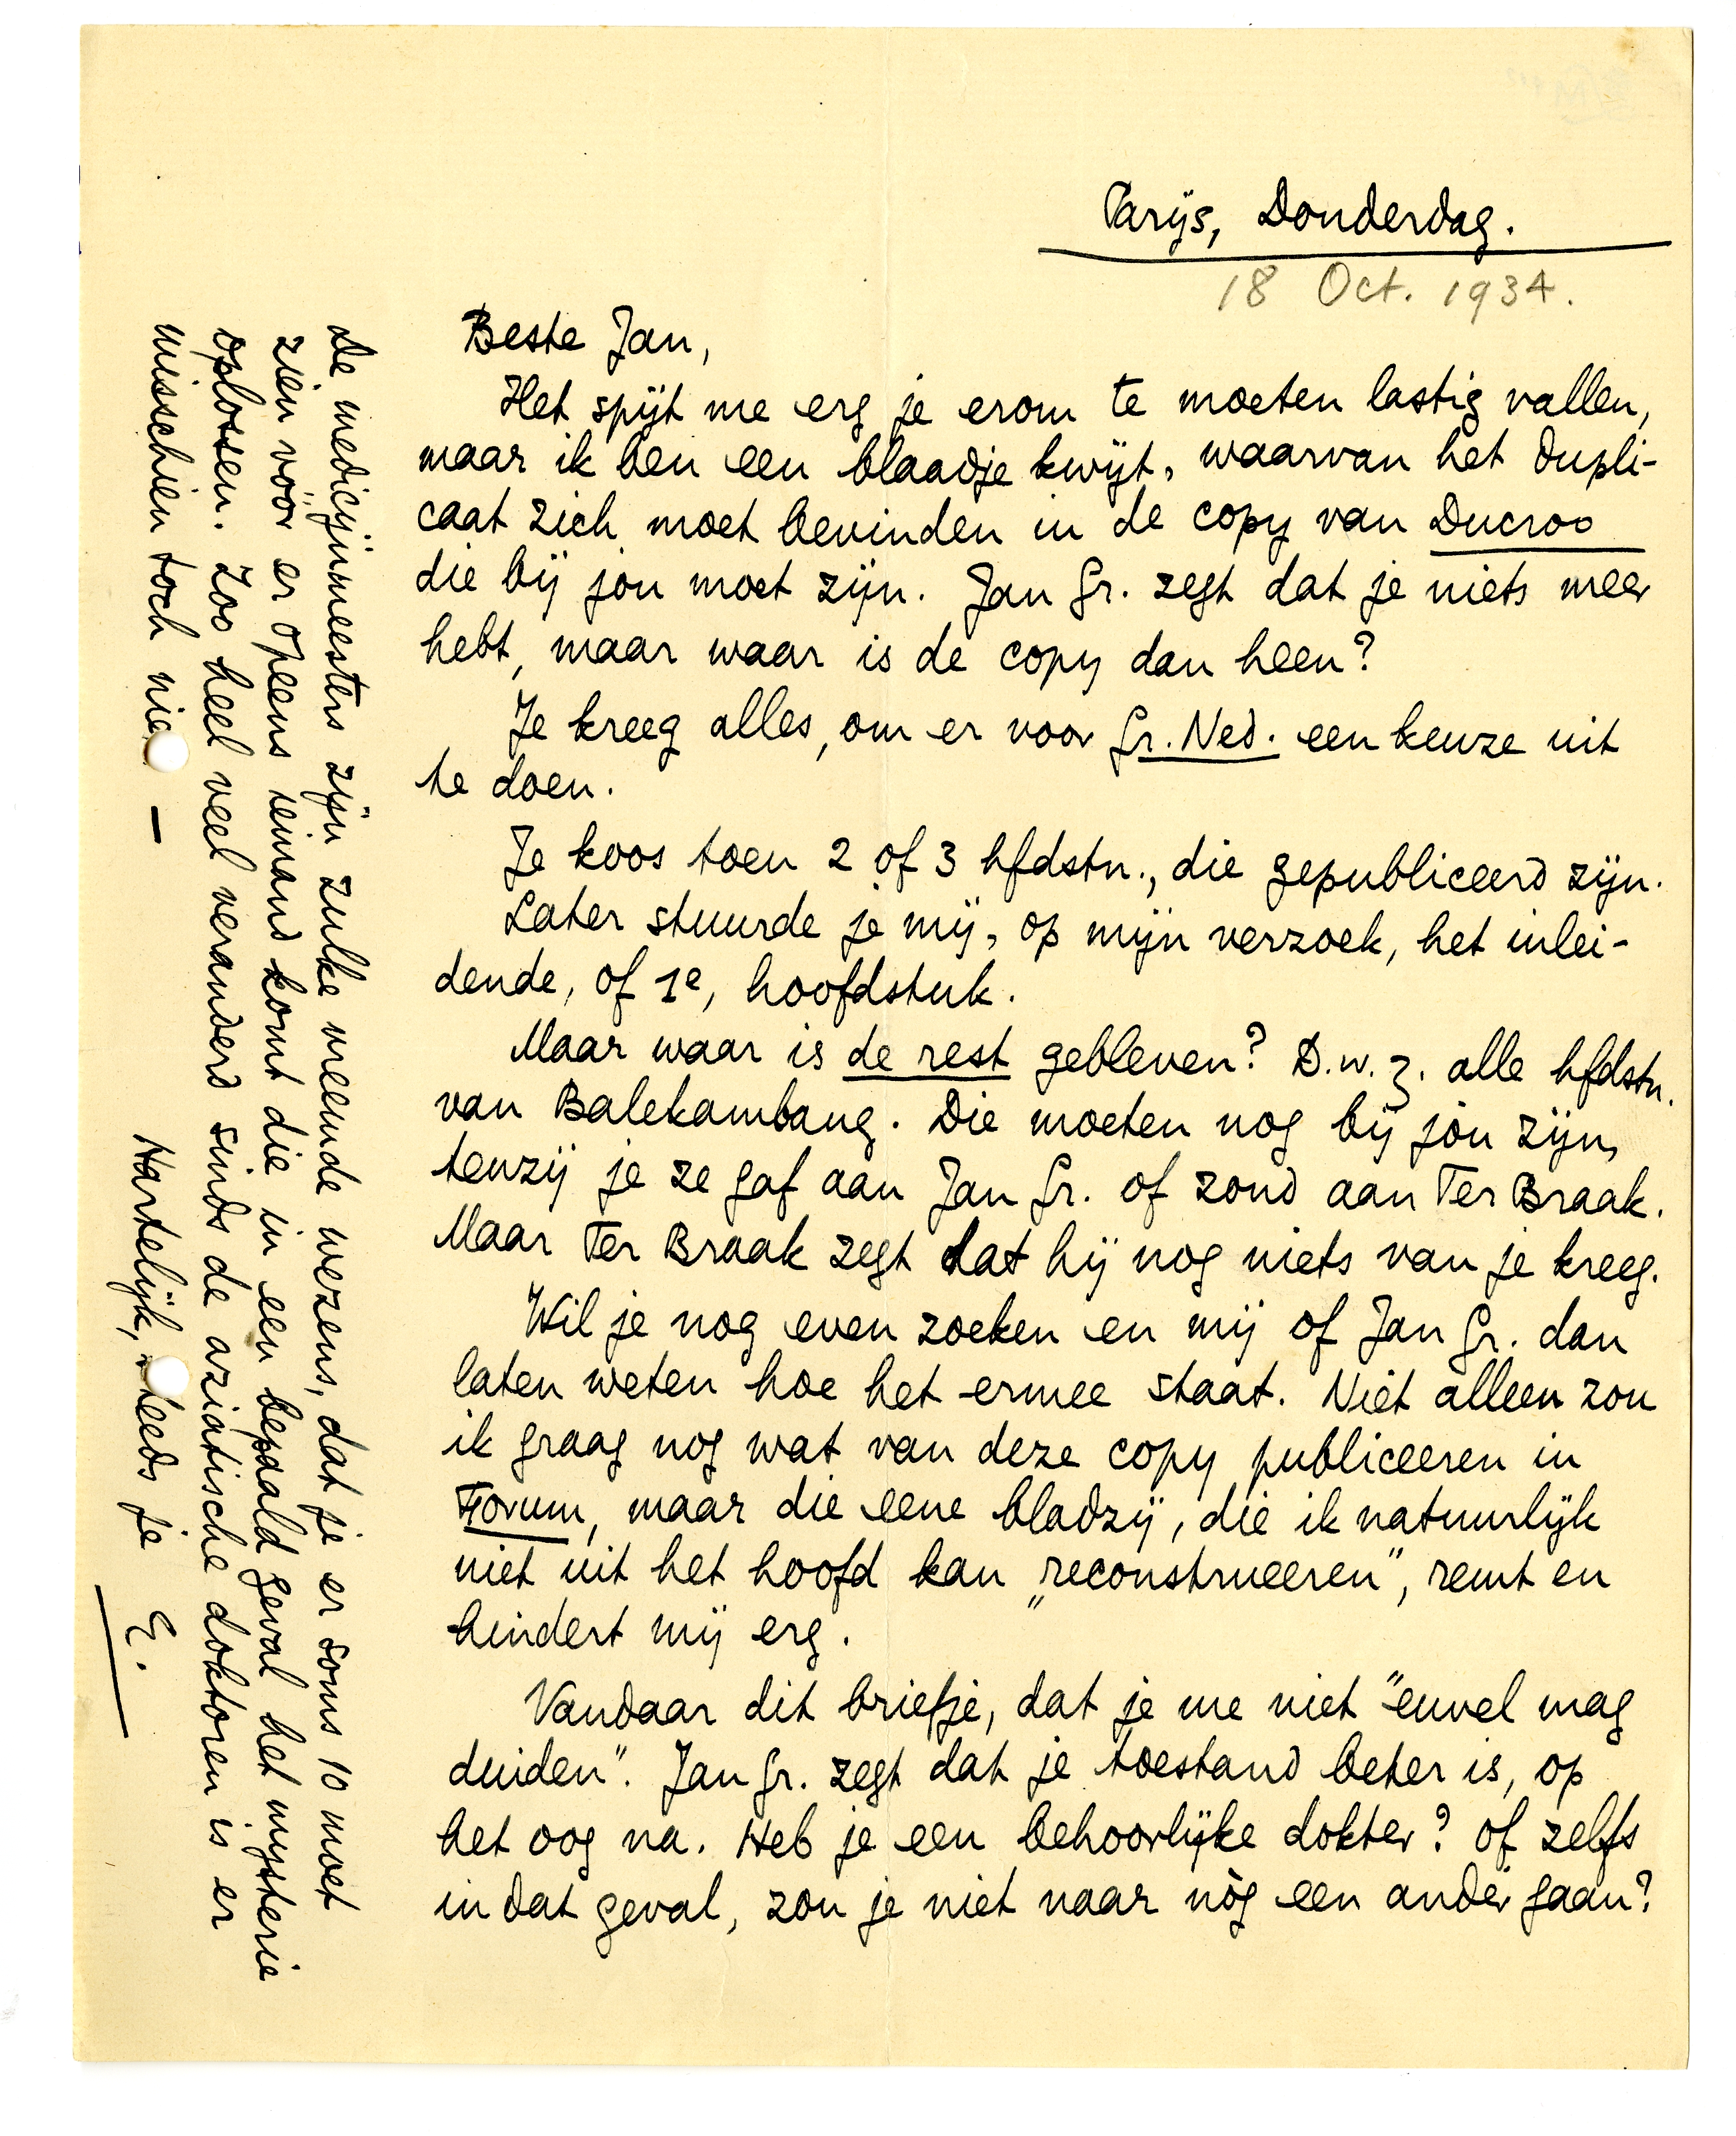 Parijs, Donderdag.
18 Oct. 1934.
Beste Jan,
Het spijt me erg je erom te moeten lastig vallen,
maar ik ben een blaadje kwijt, waarvan het dupli-
caat zich moet bevinden in de copy van Ducroo
die bij jou moet zijn. Jan Gr. zegt dat je niets meer
hebt, maar waar is de copy dan heen?
Je kreeg alles, om er voor Gr. Ned. een keuze uit
te doen.
Je koos toen 2 of 3 hfdstn., die gepubliceerd zijn.
Later stuurde je mij, op mijn verzoek, het inlei-
dende, of 1e, hoofdstuk.
Maar waar is de rest gebleven? D.w.z. alle hfdstn.
van Balekambang. Die moeten nog bij jou zijn,
tenzij je ze gaf aan Jan Gr. of zond aan Ter Braak.
Maar Ter Braak zegt dat hij nog niets van je kreeg.
Wil je nog even zoeken en mij of Jan Gr. dan
laten weten hoe het ermee staat. Niet alleen zou
ik graag nog wat van deze copy publiceeren in
Forum, maar die eene bladzij, die ik natuurlijk
niet uit het hoofd kan „reconstrueeren”, remt en
hindert mij erg.
Vandaar dit briefje, dat je me niet "euvel mag
duiden". Jan Gr. zegt dat je toestand beter is, op
het oog na. Heb je een behoorlijke dokter? of zelfs
in dat geval, zou je niet naar nòg een ander gaan?
De medicijnmeesters zijn zulke vreemde wezens, dat je er soms 10 moet
zien vóór er opeens iemand komt die in een bepaald geval het mysterie
oplossen. Zoo heel veel veranderd sinds de aziatische doktoren is er
misschien toch nie —
Hartelijk, steeds je
E.